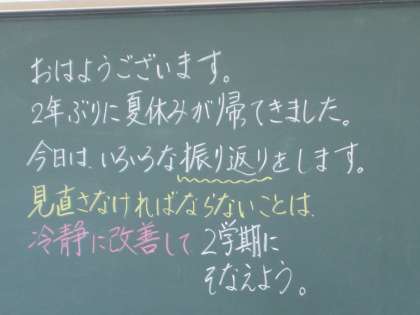 おはようございます。
2年ぶりに夏休みが帰ってきました。
今日は、いろいろな振り返りをします。
見直さなければならないことは、
冷静に改善して 2学期に
そなえよう。